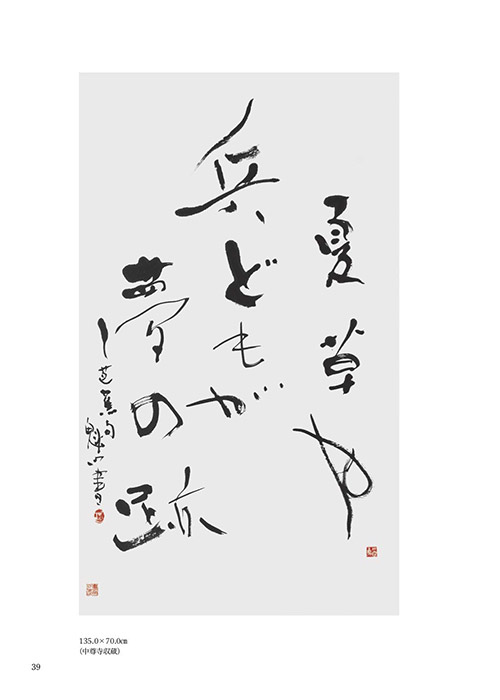 夏草や
兵どもが
夢の跡
芭蕉句 魁山書
135.0×70.0㎝
（中尊寺収蔵）
39